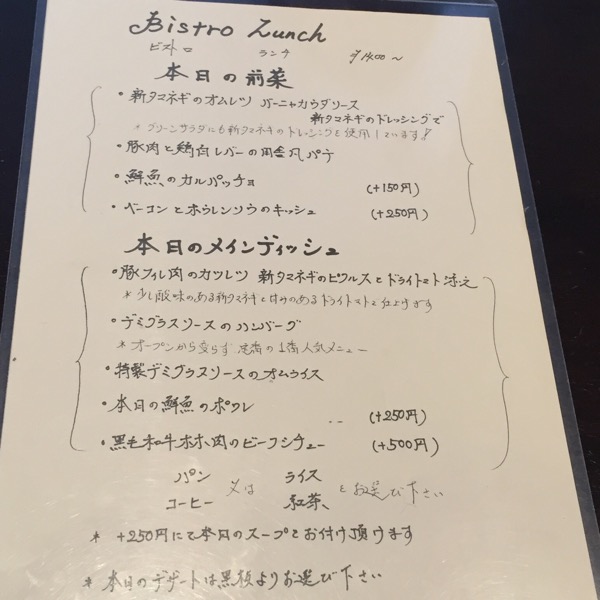 Bistro Lunch
ビストロ ランチ ¥1400～
本日の前菜
・新タマネギのオムレツ バーニャカウダソース
新タマネギのドレッシングで
*グリーンサラダにも新タマネギのドレッシングを使用しています!!
・豚肉と鶏白レバーの田舎風パテ
・鮮魚のカルパッチョ (+150円)
・ベーコンとホウレンソウのキッシュ (+250円)
本日のメインディッシュ
・豚フィレ肉のカツレツ 新タマネギのピクルスとドライトマト添え
*少し酸味のある新タマネギと甘みのあるドライトマトで仕上げます
・デミグラスソースのハンバーグ
*オープンから変らず 定番の1番人気メニュー
・特製デミグラスソースのオムライス
・本日の鮮魚のポワレ (+250円)
・黒毛和牛ホホ肉のビーフシチュー (+500円)
パン 又は ライス
コーヒー 紅茶、をお選び下さい
* +250円にて本日のスープをお付け頂けます
* 本日のデザートは黒板よりお選び下さい